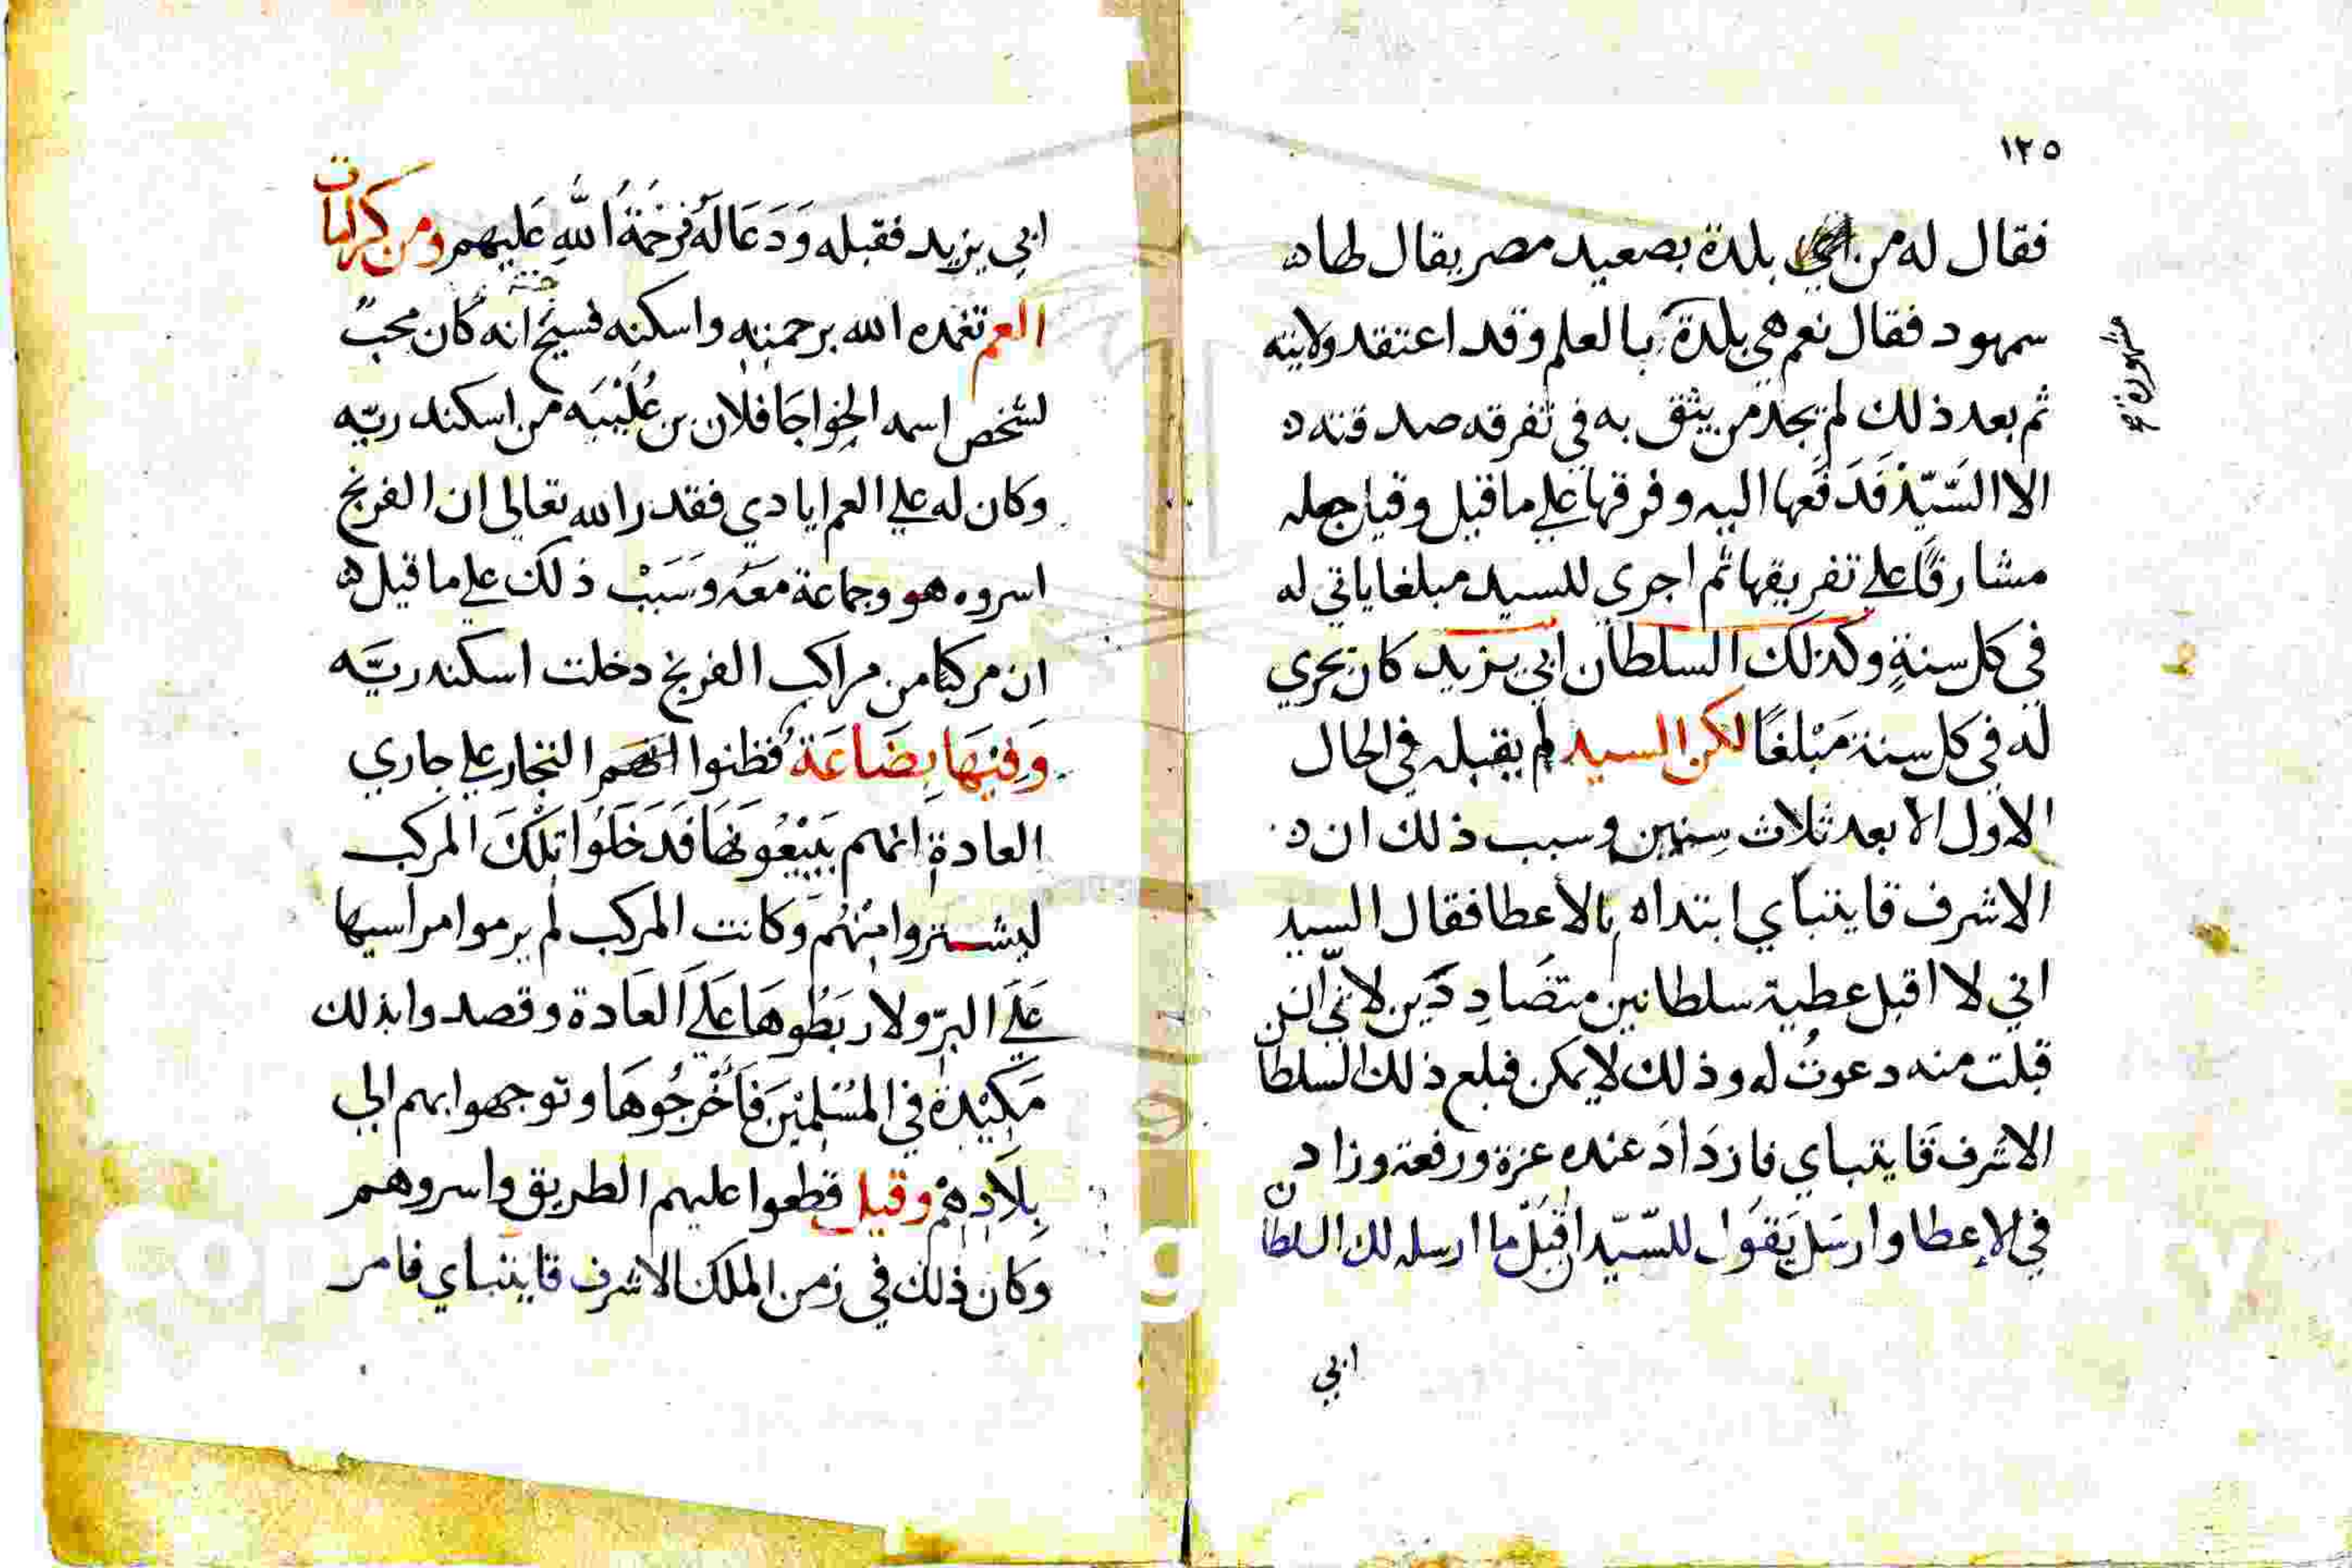 ١٢٥
فقال له من اي بلدة بصعيد مصر يقال لها
سمهود فقال نعم هي بلدة بالعلم وقد اعتقد ولايته
مشهورة
ثم بعد ذلك لم يجد من يثق به في تفرقه صدقته
الا السَّيّد فَدَفَعها اليه وفرقها علي ما قيل وقيل جعله
مشارفًا علي تفريقها ثم اجري للسيد مبلغا ياتي له
في كل سنةٍ وكذلك السلطان ابي يزيد كان يجري
له في كل سنة مَبْلغًا لكن السيد لم يقبله في الحال
الاول الا بعد ثلاث سِنين وسبب ذلك ان
الاشرف قايتباي ابتداه بالاعطا فقال السيد
اني لا اقبل عطية سلطانين متضَادِدَين لانّي ان
قبلت منه دعوتُ له وذلك لا يمكن فبلغ ذلك السلطان
الاشرف قَايتباي فازدَادَ عنده عزة ورفعة وزاد
في الإعطا وارسَل يَقوَل للسّيّد اقْبَلْ ما ارسله لك السلطان
ابي
ابي يزيد فقبله وَدَعَا لَه فرَحْمَةُ اللَّهِ عَليهم ومن كرامات
العم تغمده الله برحمته واسكنه فسيح جنته انه كان محبً
لشخص اسمه الخواجَا فلان بن عُلَيْبَيه من اسكندريّه
وكان له علي العم ايادي فقدر الله تعالي ان الفرنج
اسروه هو وجماعة معَه وسَبَبْ ذلك علي ما قيل
ان مركبًا من مراكب الفرنج دخلت اسكندريَّه
وَفيْهَا بِضَاعَة فظنوا انهم التجار علي جاري
العادة انهم يَبيْعُونهَا فَدَخَلَوُا تلْكَ المركب
ليشتروا مِنْهُم وَكانت المركب لم يرموا مراسيها
عَلَي البرّ ولا ربَطُوهَا عَلَي العَادة وقصدوا بذلك
مَكِيْدةً في المُسْلِميْنَ فَأخْرجُوهَا وتوجهوا بهم الي
بِلَادِهمْ وقيل قطعوا عليهم الطريق واسروهم
وَكان ذلك في زمن الملك الاشرف قايتباي فامر